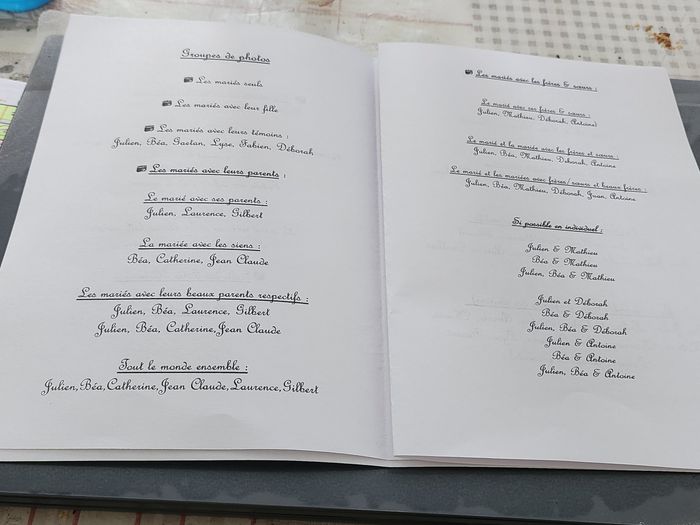 Groupes de photos
Les mariés seuls
Les mariés avec leur fille
Les mariés avec leurs témoins :
Julien, Béa, Gaetan, Lyse, Fabien, Déborah
Les mariés avec leurs parents :
Le marié avec ses parents :
Julien, Laurence, Gilbert
La mariée avec les siens :
Béa, Catherine, Jean Claude
Les mariés avec leurs beaux parents respectifs :
Julien, Béa, Laurence, Gilbert
Julien, Béa, Catherine,Jean Claude
Tout le monde ensemble :
Julien,Béa,Catherine,Jean Claude,Laurence,Gilbert
Les mariés avec les frères & sœurs :
Le marié avec ses frères & sœurs :
Julien, Mathieu, Déborah, Antoine)
Le marié et la mariée avec les frères et sœurs :
Julien, Béa, Mathieu, Déborah, Antoine
Le marié et les mariées avec frères/sœurs et beaux frères :
Julien, Béa, Mathieu, Déborah, Juan, Antoine
Si possible en individuel :
Julien & Mathieu
Béa & Mathieu
Julien, Béa & Mathieu
Julien et Déborah
Béa & Déborah
Julien, Béa & Déborah
Julien & Antoine
Béa & Antoine
Julien, Béa & Antoine